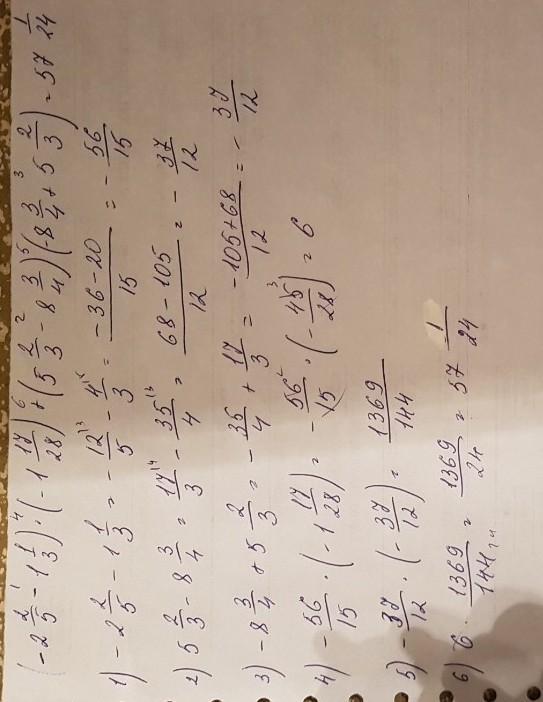 (-2 2/5 - 1 1/3) · (-1 17/28) + (5 2/3 - 8 3/4)(-8 3/4 + 5 2/3) = 57 1/24
1) -2 2/5 - 1 1/3 = -12/5 - 4/3 = (-36-20)/15 = -56/15
2) 5 2/3 - 8 3/4 = 17/3 - 35/4 = (68-105)/12 = -37/12
3) -8 3/4 + 5 2/3 = -35/4 + 17/3 = (-105+68)/12 = -37/12
4) -56/15 · (-1 17/28) = -56/15 · (-45/28) = 6
5) -37/12 · (-37/12) = 1369/144
6) 6 · 1369/144 = 1369/24 = 57 1/24